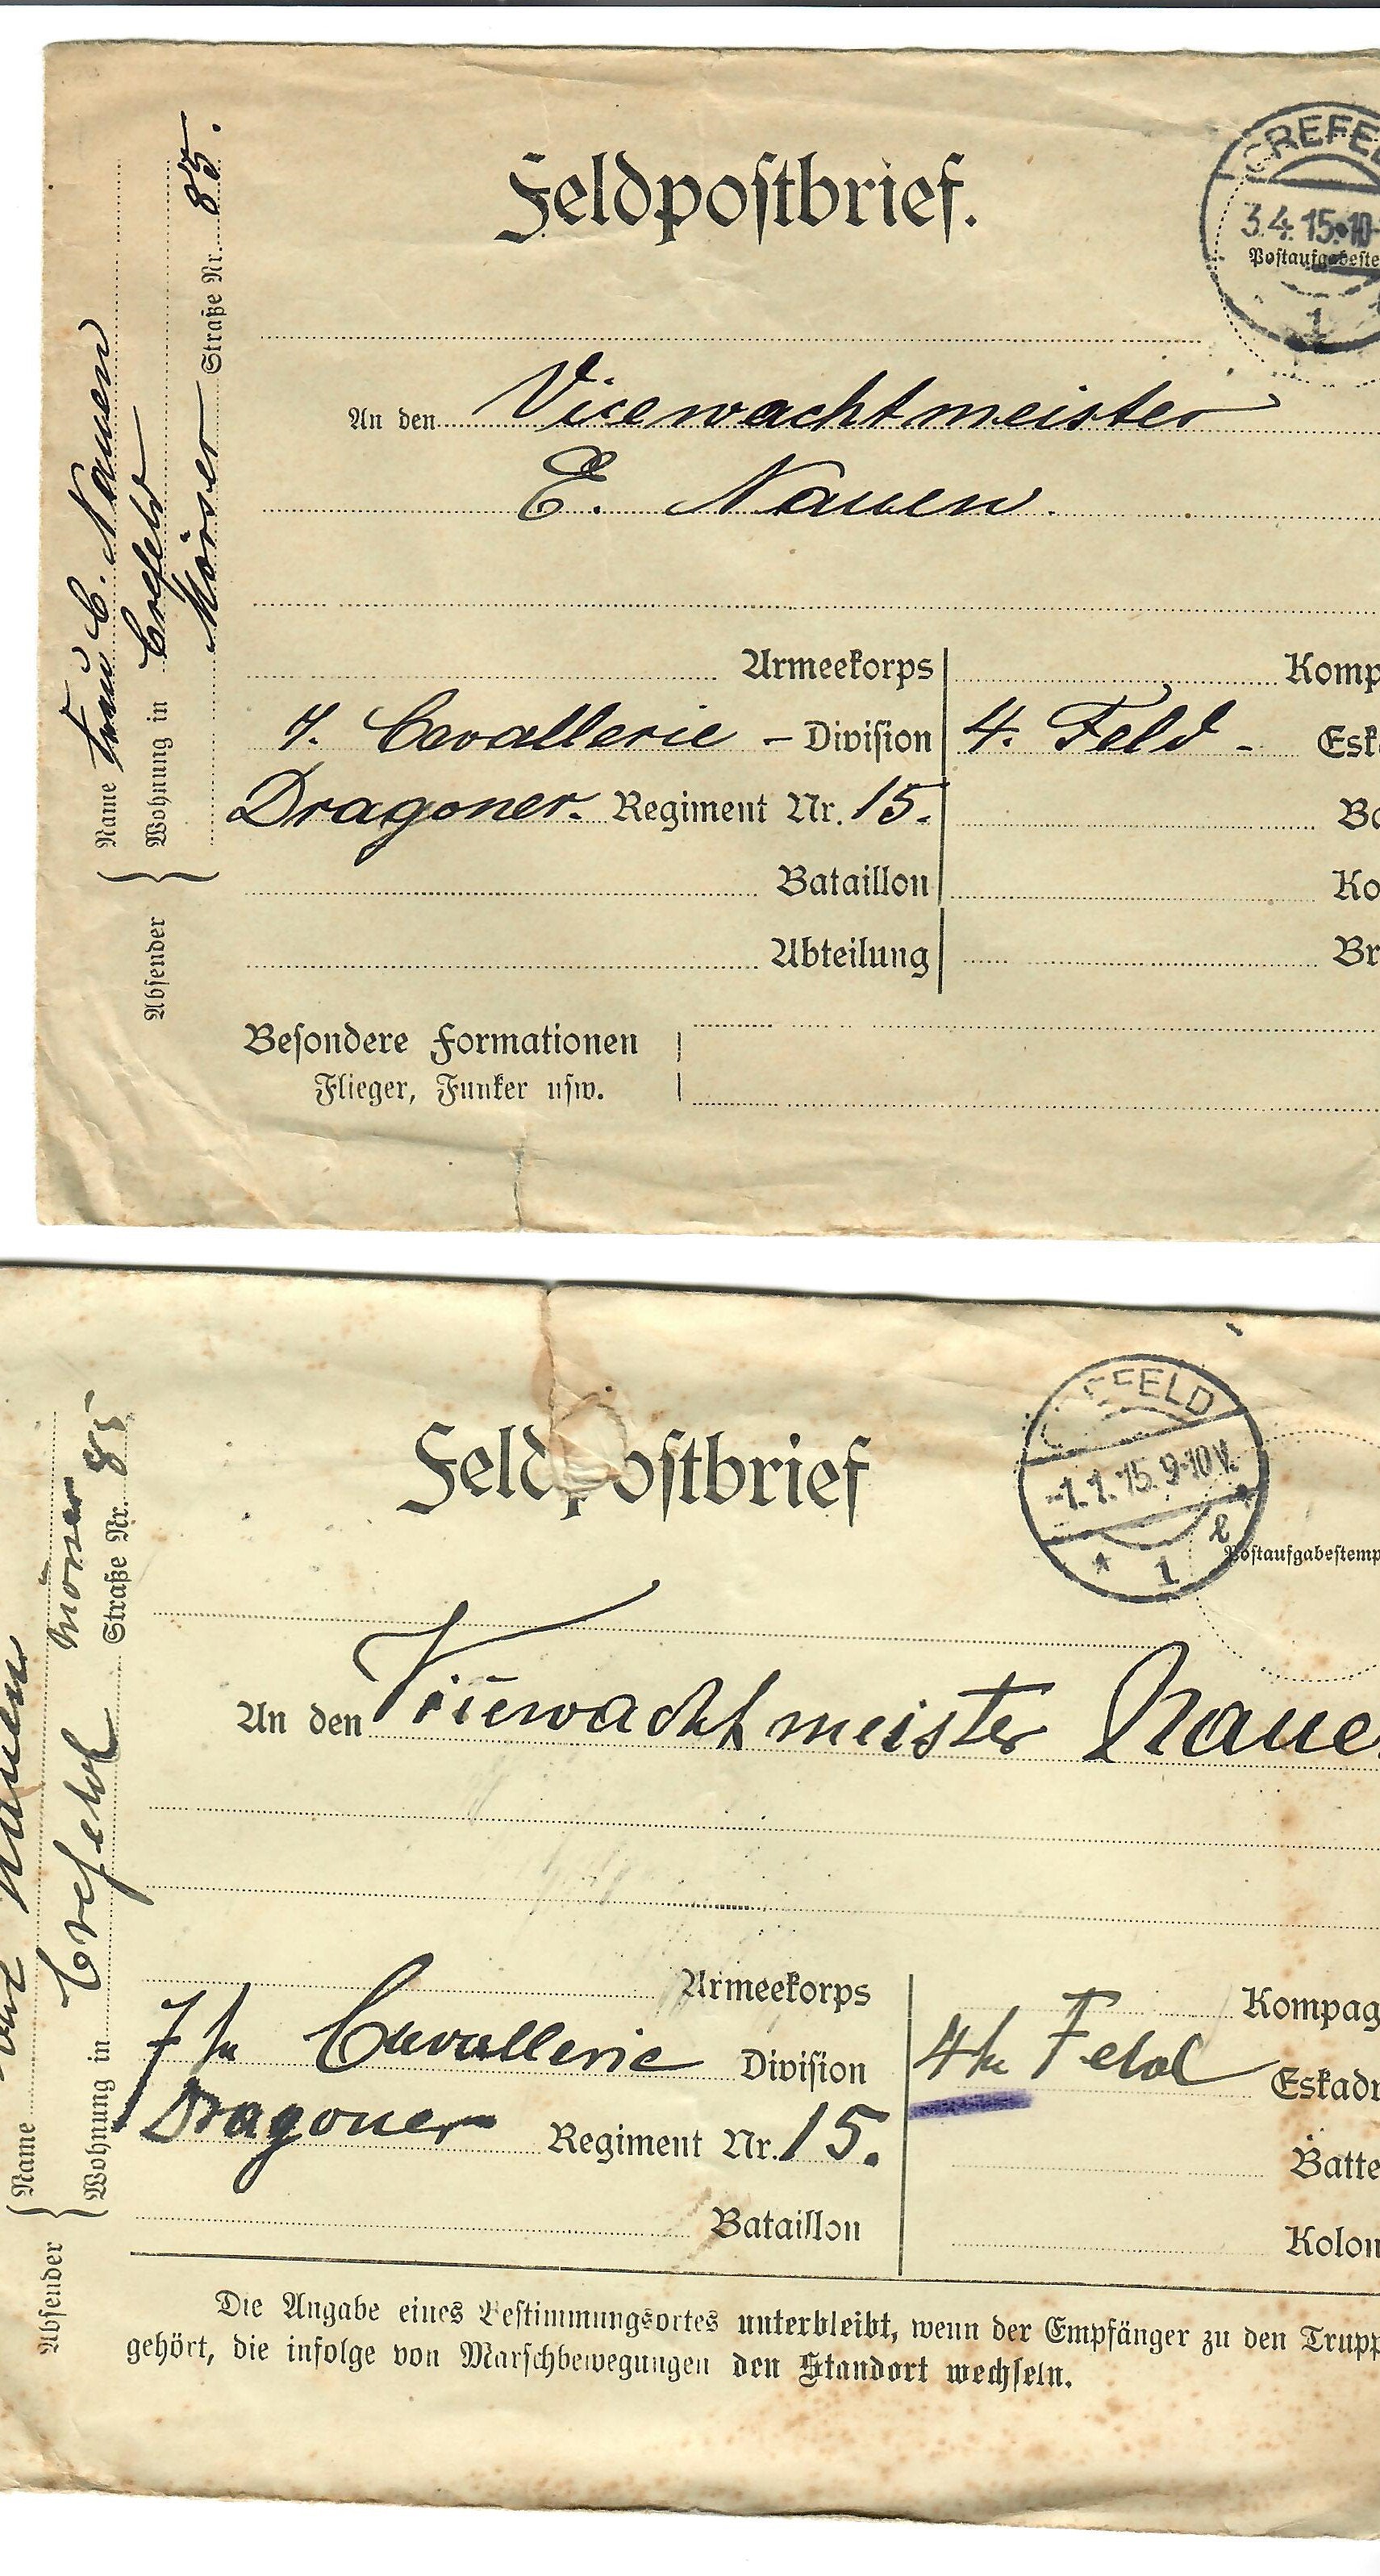 Feldpostbrief.
CREFEL
3.4.15.10-
Postaufgabeste
1
An den Vicewachtmeister
E. Nauen.
Armeekorps
Komp
7. Cavallerie - Division
4. Feld - Esk
Dragoner. Regiment Nr. 15.
Ba
Bataillon
Ko
Abteilung
Br
Besondere Formationen
Flieger, Funker usw.
Absender
Name Frau C. Nauen
Wohnung in Crefeld
Mörser Straße Nr. 85.
Feldpostbrief
EFELD
-1.1.15.9-10V.
* 1 e
Postaufgabestemp
An den Vicewachtmeister Naue
Armeekorps
Kompag
7te Cavallerie Division
4te Feld Eskadr
Dragoner Regiment Nr. 15.
Batte
Bataillon
Kolon
Die Angabe eines Bestimmungsortes unterbleibt, wenn der Empfänger zu den Trupp
gehört, die infolge von Marschbewegungen den Standort wechseln.
Absender
Name Nauen
Wohnung in Crefeld Mörser
Straße Nr. 85